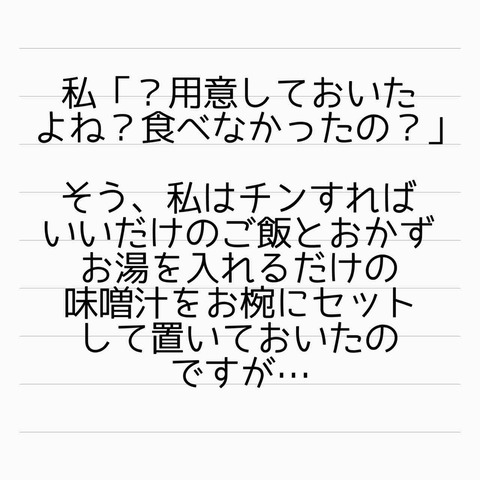 私「？用意しておいた
よね？食べなかったの？」
そう、私はチンすれば
いいだけのご飯とおかず
お湯を入れるだけの
味噌汁をお椀にセット
して置いておいたの
ですが…